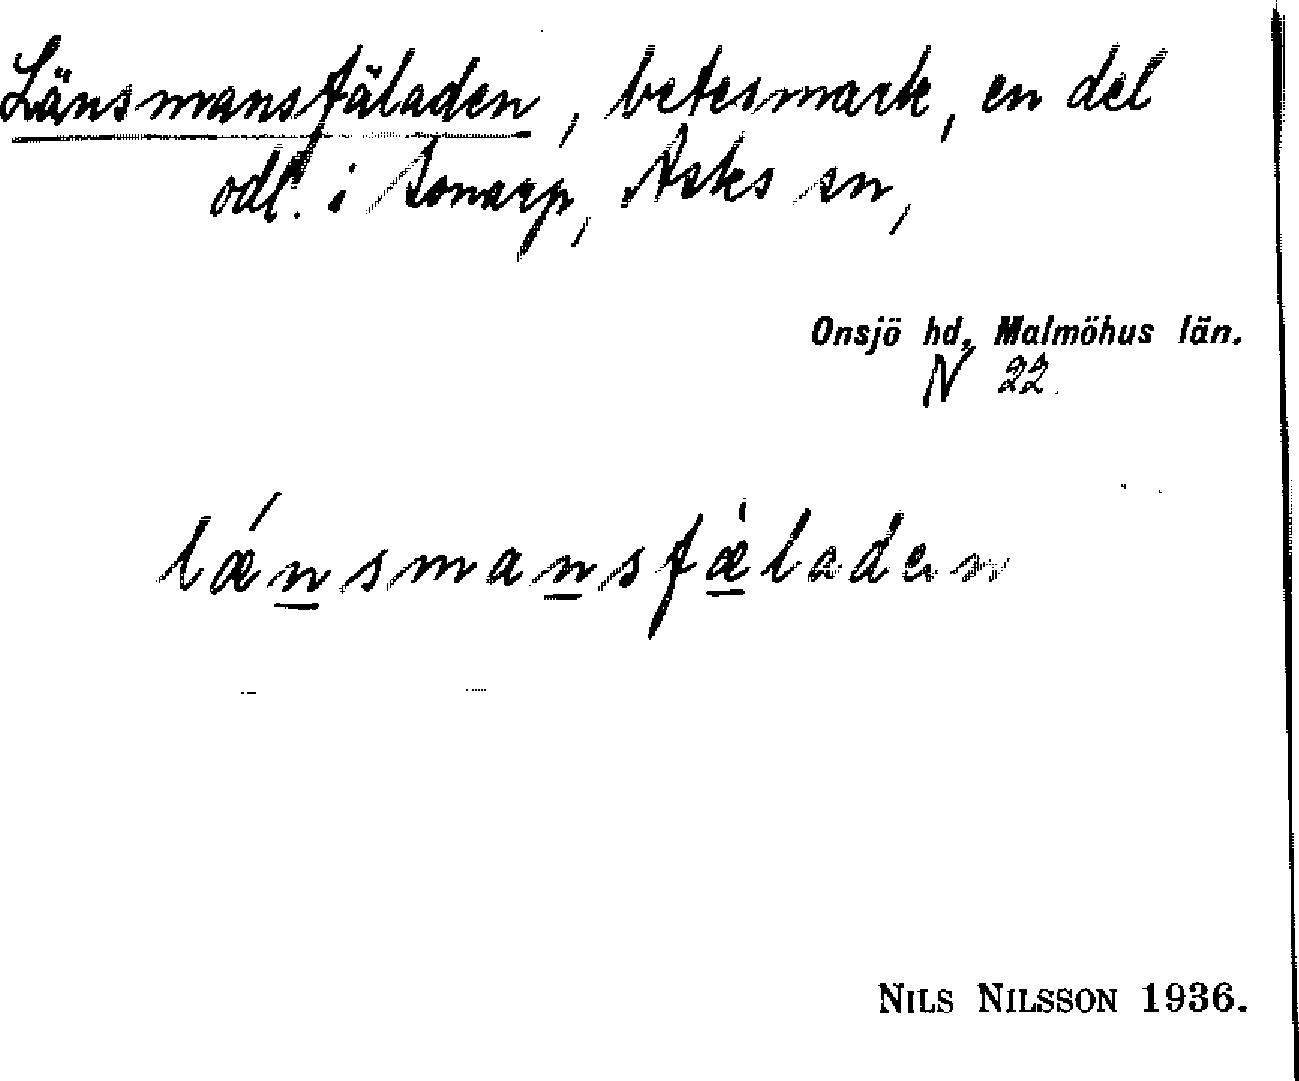 Länsmansfäladen, betesmark, en del
odl. i Sonarp, Asks sn,
Onsjö hd, Malmöhus län.
N 22.
lǽnsmansfæ̀ladan
NILS NILSSON 1936.